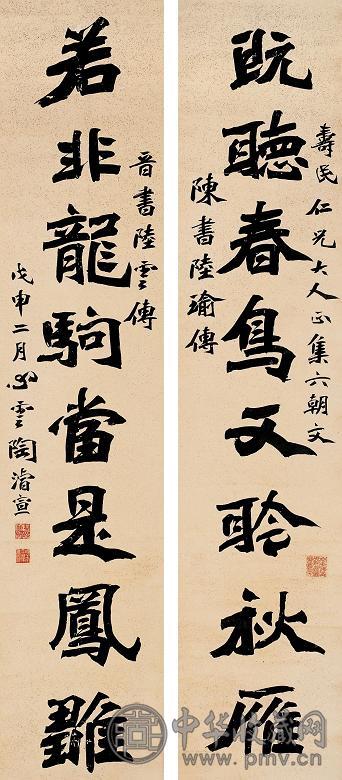 壽民仁兄大人正集六朝文
既聽春鳥又聆秋雁
陳書陸瑜傳
晉書陸雲傳
若非龍駒當是鳳雛
戊申二月心雲陶濬宣
中华收藏网
www.pmv.cn